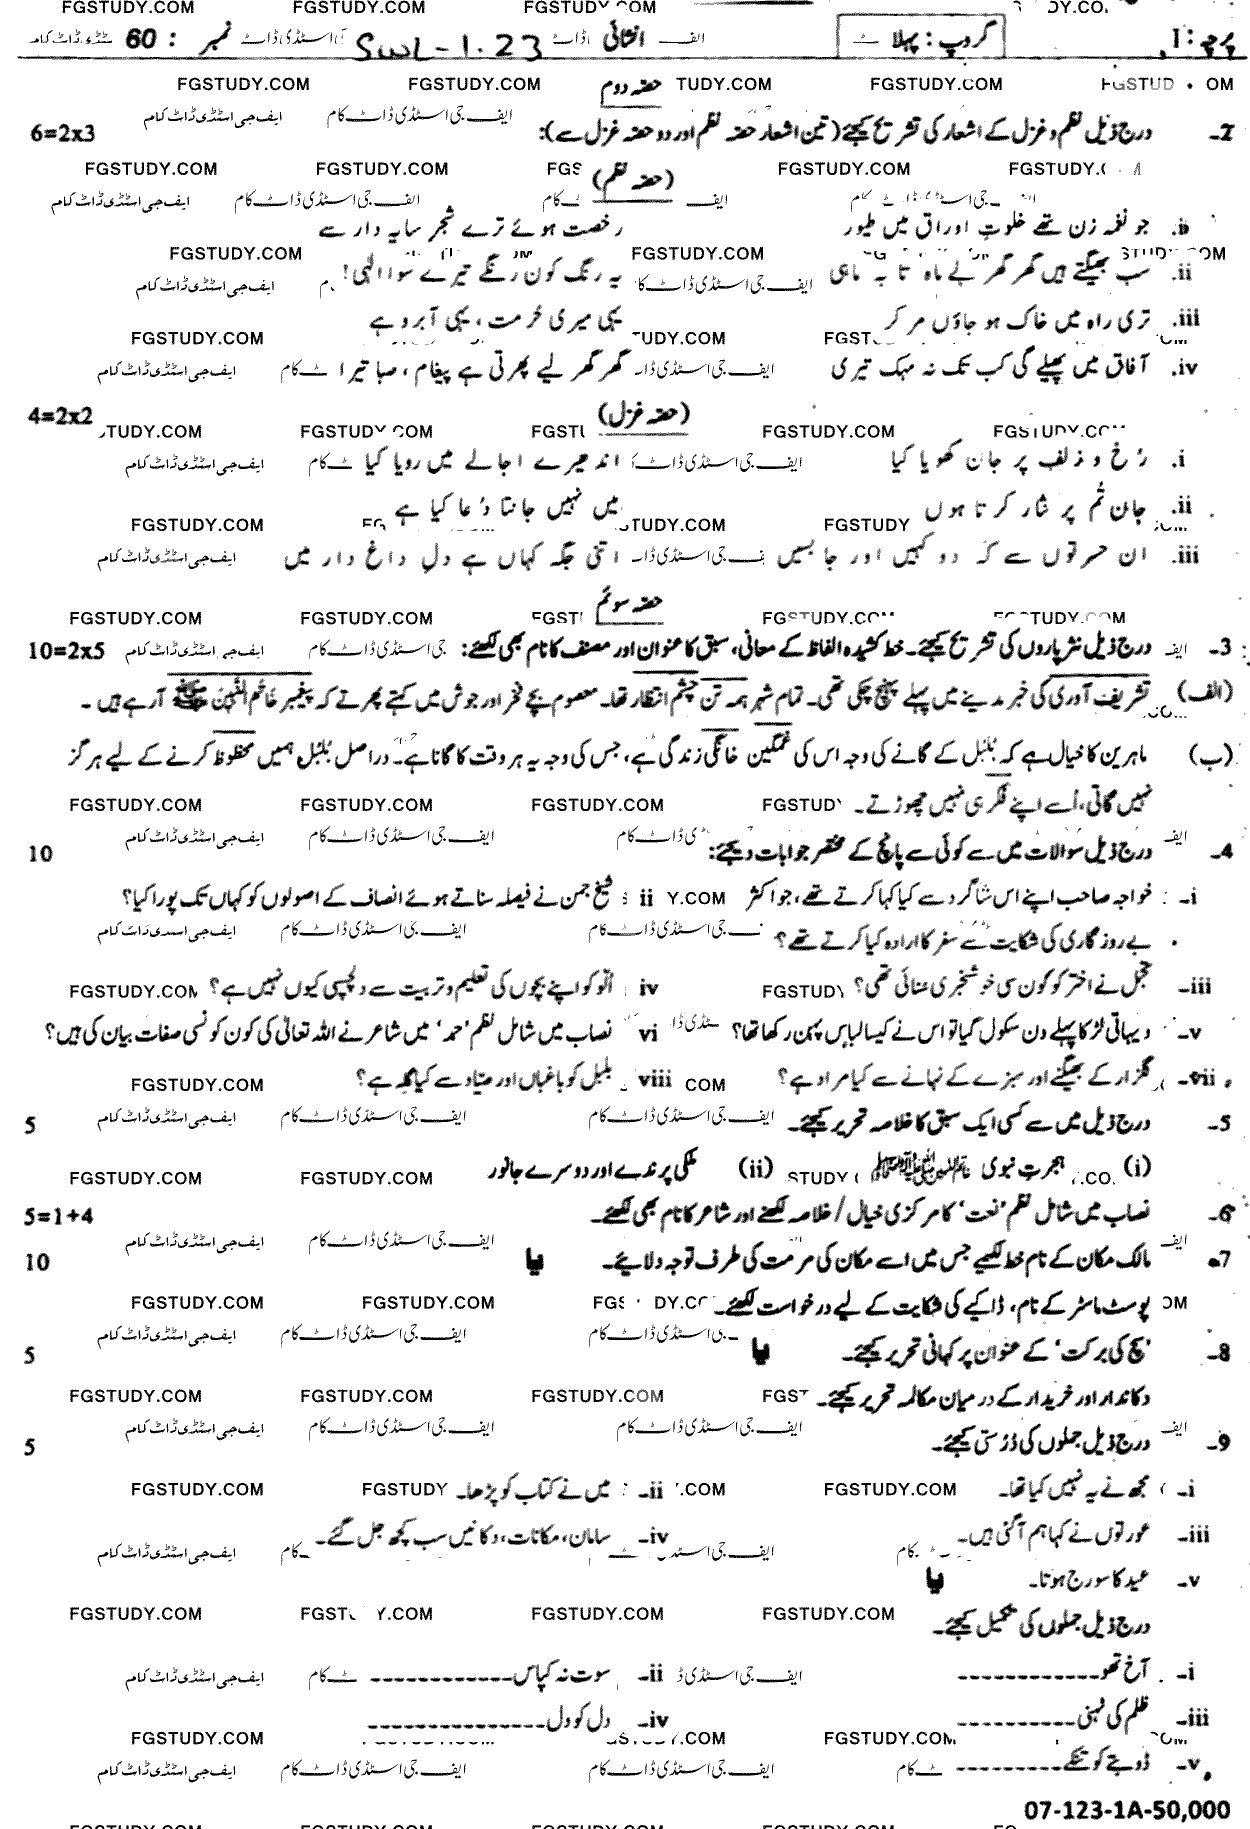 پرچہ: I گروپ: پہلا انشائی Swl-1.23 نمبر : 60
حصہ دوم
2۔ درج ذیل نظم و غزل کے اشعار کی تشریح کیجئے (تین اشعار حصہ نظم اور دو حصہ غزل سے): 6=2x3
(حصہ نظم)
i. جو نغمہ زن تھے خلوتِ اوراق میں طیور رخصت ہوئے ترے شجرِ سایہ دار سے
ii. سب بھیگتے ہیں گھر گھر لے ماہ تا بہ ماہی یہ رنگ کون رنگے تیرے سوا الٰہی!
iii. تری راہ میں خاک ہو جاؤں مر کر یہی میری حُرمت، یہی آبرو ہے
iv. آفاق میں پھیلے گی کب تک نہ مہک تیری گھر گھر لیے پھرتی ہے پیغام، صبا تیرا
(حصہ غزل) 4=2x2
i. رُخ و زلف پر جان کھویا کیا اندھیرے اجالے میں رویا کیا
ii. جان تُم پر نثار کرتا ہوں میں نہیں جانتا دُعا کیا ہے
iii. ان حسرتوں سے کہ دو کہیں اور جا بسیں اتنی جگہ کہاں ہے دلِ داغ دار میں
حصہ سوئم
3۔ درج ذیل نثر پاروں کی تشریح کیجئے۔ خط کشیدہ الفاظ کے معانی، سبق کا عنوان اور مصنف کا نام بھی لکھئے: 10=2x5
(الف) تشریف آوری کی خبر مدینے میں پہلے پہنچ چکی تھی۔ تمام شہر ہمہ تن چشمِ انتظار تھا۔ معصوم بچے فخر اور جوش میں کہتے پھرتے کہ پیغمبر خاتم النبیین ﷺ آرہے ہیں۔
(ب) ماہرین کا خیال ہے کہ بُلبل کے گانے کی وجہ اس کی غمگین خانگی زندگی ہے، جس کی وجہ یہ ہر وقت کا گانا ہے۔ دراصل بلبل ہمیں محظوظ کرنے کے لیے ہرگز
نہیں گاتی، اُسے اپنے فکر ہی نہیں چھوڑتے۔
4۔ درج ذیل سوالات میں سے کوئی سے پانچ کے مختصر جوابات دیجئے: 10
i۔ خواجہ صاحب اپنے اس شاگرد سے کیا کہا کرتے تھے، جو اکثر ii شیخ جمن نے فیصلہ سناتے ہوئے انصاف کے اصولوں کو کہاں تک پورا کیا؟
بے روزگاری کی شکایت سے سفر کا ارادہ کیا کرتے تھے؟
iii۔ تجمل نے اختر کو کون سی خوشخبری سنائی تھی؟ iv الّو کو اپنے بچوں کی تعلیم و تربیت سے دلچسپی کیوں نہیں ہے؟
v۔ دیہاتی لڑکا پہلے دن سکول گیا تو اس نے کیسا لباس پہن رکھا تھا؟ vi نصاب میں شامل نظم 'حمد' میں شاعر نے اللہ تعالیٰ کی کون کونسی صفات بیان کی ہیں؟
vii۔ گلزار کے بھیگنے اور سبزے کے نہانے سے کیا مراد ہے؟ viii بلبل کو باغباں اور صیّاد سے کیا گلہ ہے؟
5۔ درج ذیل میں سے کسی ایک سبق کا خلاصہ تحریر کیجئے۔ 5
(i) ہجرتِ نبوی (ii) ملکی پرندے اور دوسرے جانور
6۔ نصاب میں شامل نظم 'نعت' کا مرکزی خیال / خلاصہ لکھئے اور شاعر کا نام بھی لکھئے۔ 5=1+4
7۔ مالک مکان کے نام خط لکھیے جس میں اسے مکان کی مرمت کی طرف توجہ دلائیے۔ یا 10
پوسٹ ماسٹر کے نام، ڈاکیے کی شکایت کے لیے درخواست لکھئے۔
8۔ 'سچ کی برکت' کے عنوان پر کہانی تحریر کیجئے۔ یا 5
دکاندار اور خریدار کے درمیان مکالمہ تحریر کیجئے۔
9۔ درج ذیل جملوں کی دُرستی کیجئے۔ 5
i۔ مجھ نے یہ نہیں کیا تھا۔ ii۔ میں نے کتاب کو پڑھا۔
iii۔ عورتوں نے کہا ہم آگئی ہیں۔ iv۔ سامان، مکانات، دکانیں سب کچھ جل گئے۔
v۔ عید کا سورج ہوتا۔ یا
درج ذیل جملوں کی تکمیل کیجئے۔
i۔ آخ تھو------------ ii۔ سوت نہ کپاس------------
iii۔ ظلم کی ٹہنی------------ iv۔ دل کو دل---------------
v۔ ڈوبتے کو تنکے------------
07-123-1A-50,000
FGSTUDY.COM
ایف جی اسٹڈی ڈاٹ کام